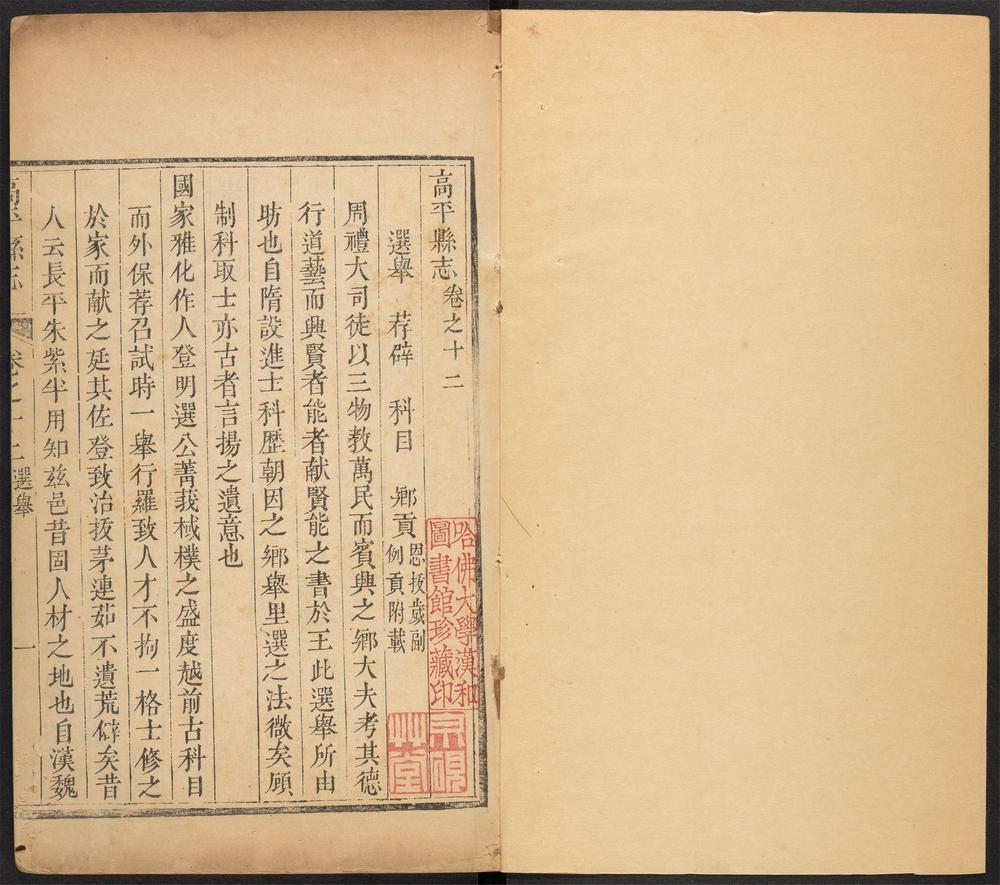 高平縣志卷之十二
選舉 荐辟 科目 鄉貢 恩拔歲副
例貢附載
周禮大司徒以三物教萬民而賓興之鄉大夫考其德
行道藝而興賢者能者献賢能之書於王此選舉所由
昉也自隋設進士科歷朝因之鄉舉里選之法微矣顧
制科取士亦古者言揚之遺意也
國家雅化作人登明選公菁莪棫樸之盛度越前古科目
而外保荐召試時一舉行羅致人才不拘一格士修之
於家而献之廷其佐登致治拔茅連茹不遺荒僻矣昔
人云長平朱紫半用知兹邑昔固人材之地也自漢魏
高平縣志 卷之十二 選舉 一
哈佛大學漢和
圖書館珍藏印